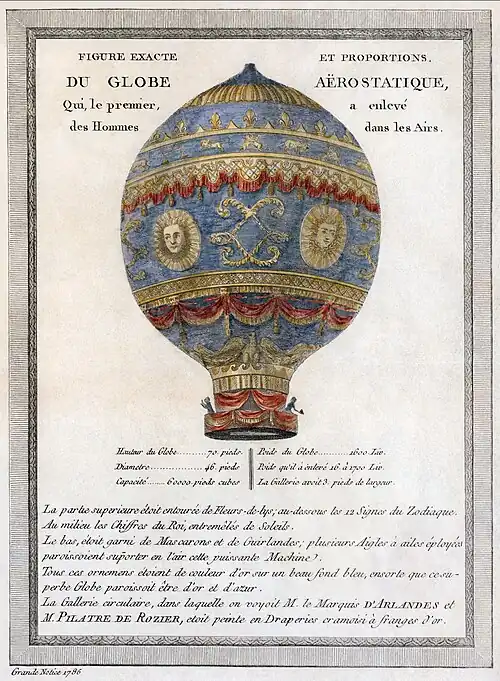 FIGURE EXACTE ET PROPORTIONS,
DU GLOBE AËROSTATIQUE,
Qui, le premier, a enlevé
des Hommes dans les Airs.
Hauteur du Globe........70. pieds.
Diametre................46. pieds
Capacité......60000. pieds cubes
Poids du Globe..........1600 Liv.
Poids qu'il à énlevé 16. à 1700 Liv.
La Gallerie avoit 3. pieds de largeur.
La partie superieure étoit entourée de Fleurs-de-lys; au-dessous les 12 Signes du Zodiaque.
Au milieu les Chiffres du Roi, entremêlés de Soleils.
Le bas, étoit garni de Mascarons et de Guirlandes; plusieurs Aigles à ailes éployées
paroissoient supórter en l'air cette puissante Machine).
Tous ces ornemens étoient de couleur d'or sur un beau fond bleu, ensorte que ce su-
perbe Globe paroissoit être d'or et d'azur.
La Gallerie circulaire, dans laquelle on voyoit M. le Marquis D'ARLANDES et
M. PILATRE DE ROZIER, etoit peinte en Draperies cramoisi à franges d'or.
Grande Notice 1786